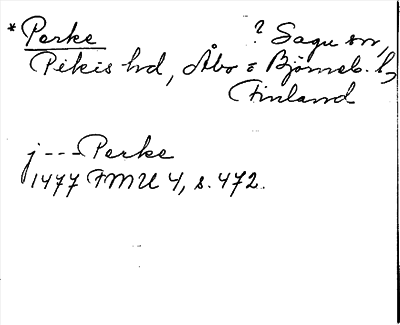 * Perke ? Sagu sn,
Pikis hd, Åbo o Björneb. l,
Finland
j---Perke
1477 FMU 4, s. 472.